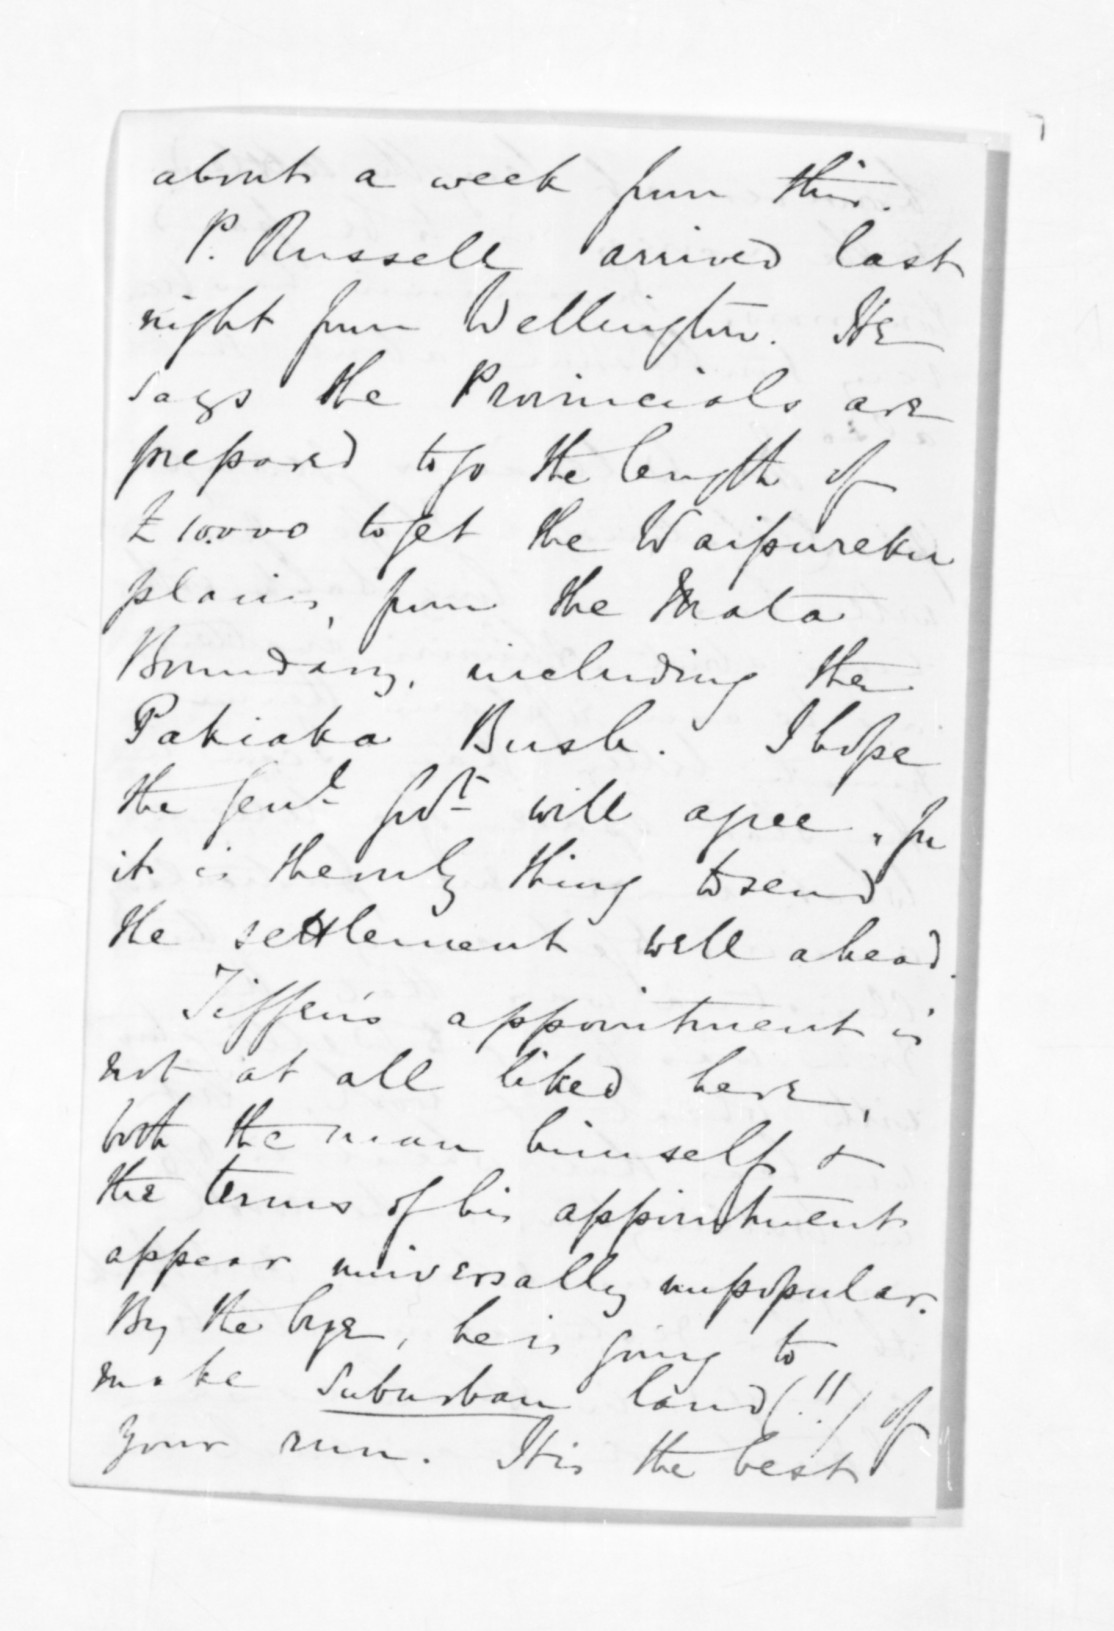 about a week from this.
P. Russell arrived last
night from Wellington. He
says the Provincials are
prepared to go the length of
£10.000 to get the Waipureku
plains, from the Mata
Boundary, including the
Pakiaka Bush. I hope
the Genl. Govt. will agree, for
it is the only thing to send
the settlement well ahead.
Tiffen's appointment is
not at all liked here,
both the man himself &
the terms of his appointment
appear universally unpopular.
By the bye, he is going to
make suburban land (!!) of
your run. It is the best